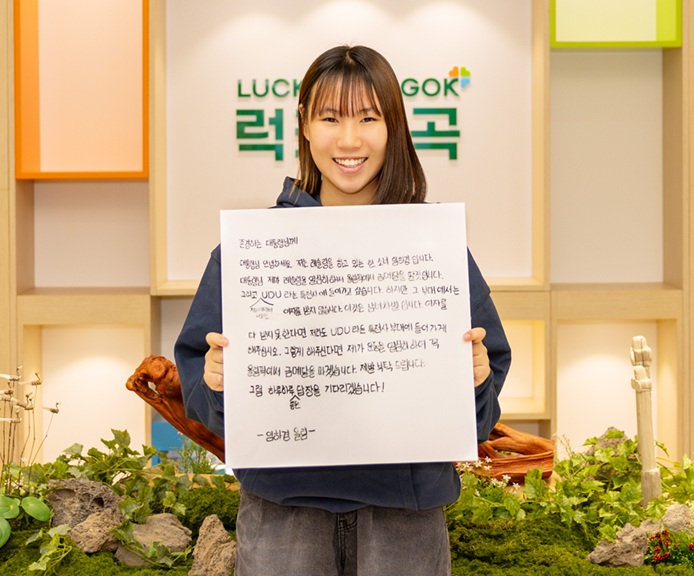 LUCK GOK
럭 곡
존경하는 대통령님께!
대통령님 안녕하세요. 저는 레슬링을 하고 있는 한 소녀 염하경 입니다.
대통령님 제가 레슬링을 열심히해서 올림픽에서 금메달을 딸것입니다.
그리고 UDU 라는 특전사에 들어가고 싶습니다. 하지만 그 부대에서는
여자를 받지 않습니다. 이것은 남녀차별 입니다. 여자를
다 받지 못한다면 저라도 UDU 라는 특전사 부대에 들어 가게
해주십시오. 그렇게 해주신다면 제가 운동을 열심히 하여 꼭
올림픽에서 금메달을 따겠습니다. 제발 부탁 드립니다.
그럼 하루하루 답장을 기다리겠습니다!
- 염하경 올림 -